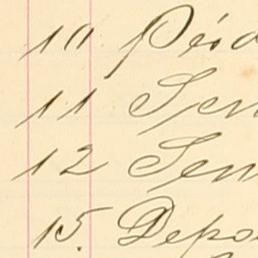 10 Péid
11 Sen
12 Sen
15. Depo